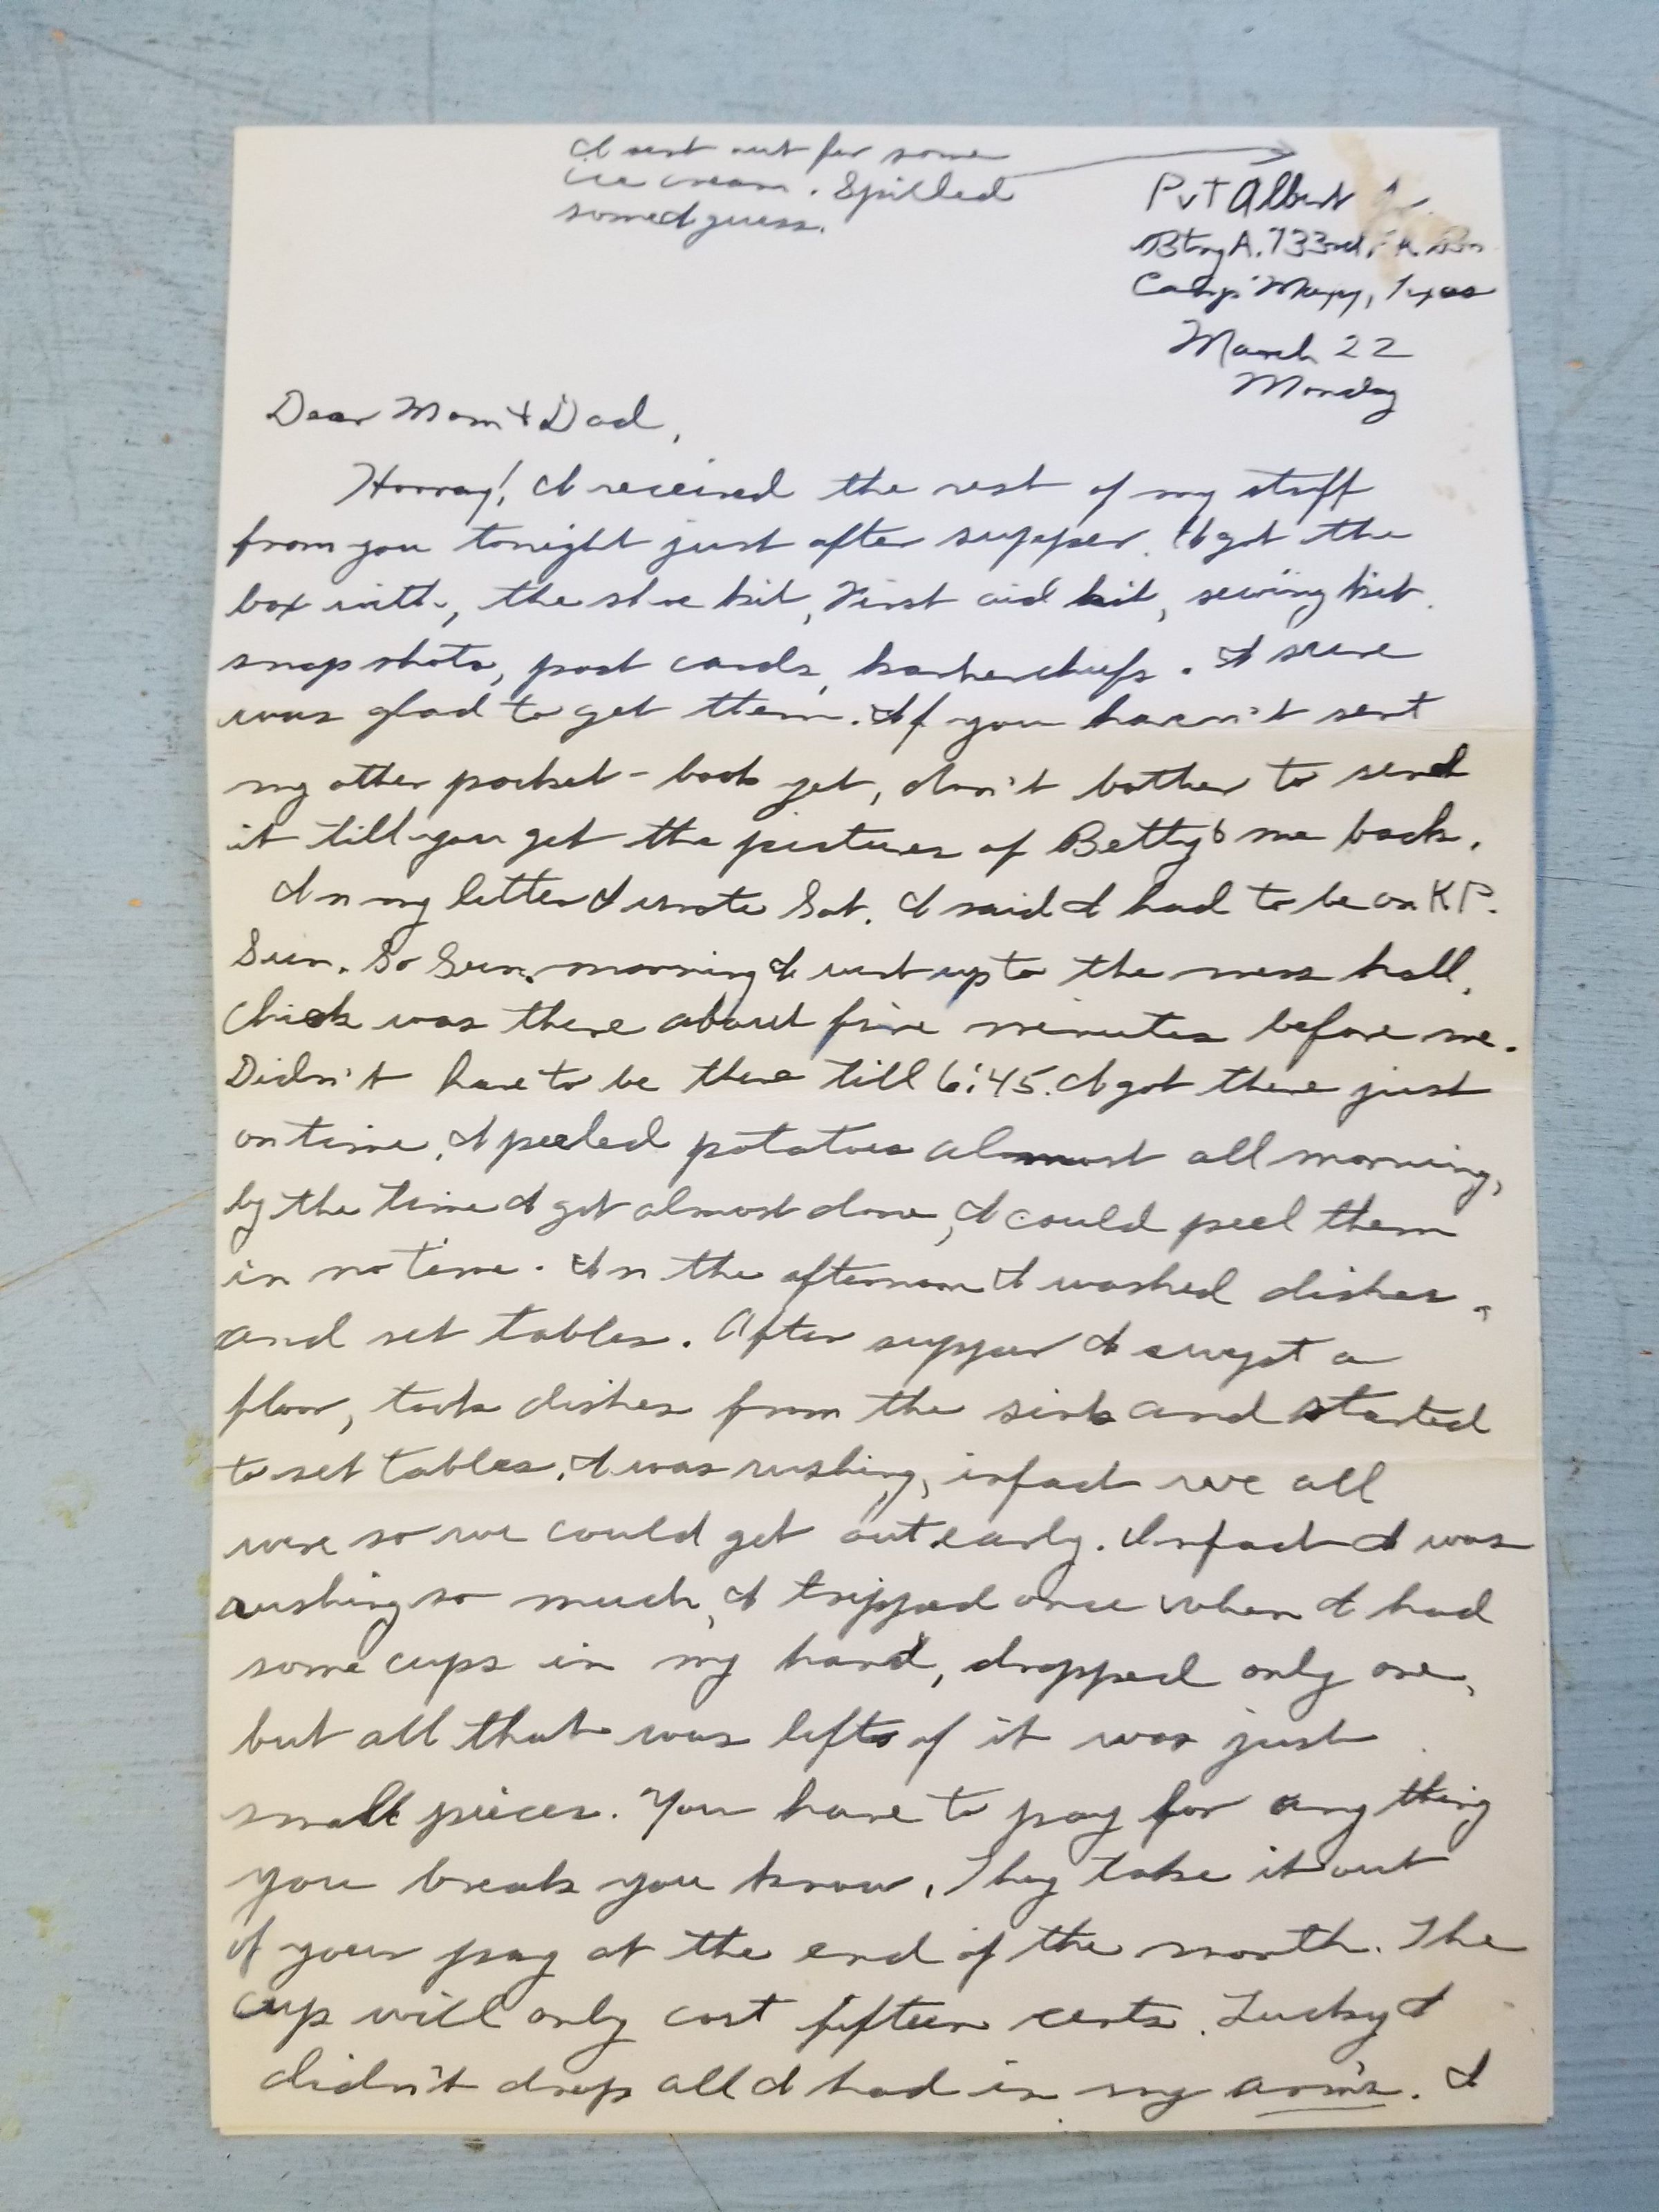 I went out for some
ice cream. Spilled
some I guess.
Pvt Albert
Btry A. 733rd, F.A. Bn
Camp Maxey, Texas
March 22
Monday
Dear Mom & Dad,
Hooray! I received the rest of my stuff
from you tonight just after supper. I got the
box with, the shoe kit, First aid kit, sewing kit,
snap shots, post cards, hankerchiefs. I sure
was glad to get them. If you haven't sent
my other pocket-book yet, don't bother to send
it till you get the pictures of Betty & me back.
In my letter I wrote Sat. I said I had to be on K.P.
Sun. So Sun. morning I went up to the mess hall.
Chick was there about five minutes before me.
Didn't have to be there till 6:45. I got there just
on time. I peeled potatoes almost all morning,
by the time I got almost done, I could peel them
in no time. In the afternoon I washed dishes,
and set tables. After supper I swept a
floor, took dishes from the sink and started
to set tables. I was rushing, infact we all
were so we could get out early. Infact I was
rushing so much, I tripped once when I had
some cups in my hand, dropped only one,
but all that was left of it was just
small pieces. You have to pay for any thing
you break you know. They take it out
of your pay at the end of the month. The
cup will only cost fifteen cents. Lucky I
didn't drop all I had in my arms. I